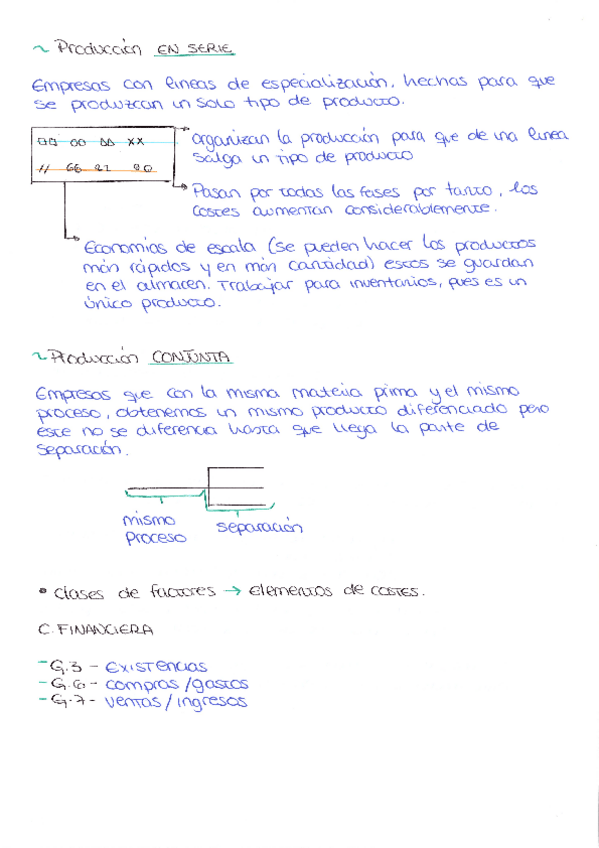 ~ Producción EN SERIE
Empresas con líneas de especialización, hechas para que
se produzcan un solo tipo de producto.
organizan la producción para que de una línea
salga un tipo de producto
Pasan por todas las fases por tanto, los
costes aumentan considerablemente.
Economías de escala (se pueden hacer los productos
más rápidos y en más cantidad) estos se guardan
en el almacen. Trabajar para inventarios, pues es un
único producto.
~ Producción CONJUNTA
Empresas que con la misma materia prima y el mismo
proceso, obtenemos un mismo producto diferenciado pero
este no se diferencia hasta que llega la parte de
separación.
mismo
proceso
separación
• Clases de factores → elementos de costes.
C. FINANCIERA
- G.3 - Existencias
- G.6 - compras / gastos
- G.7 - ventas / ingresos